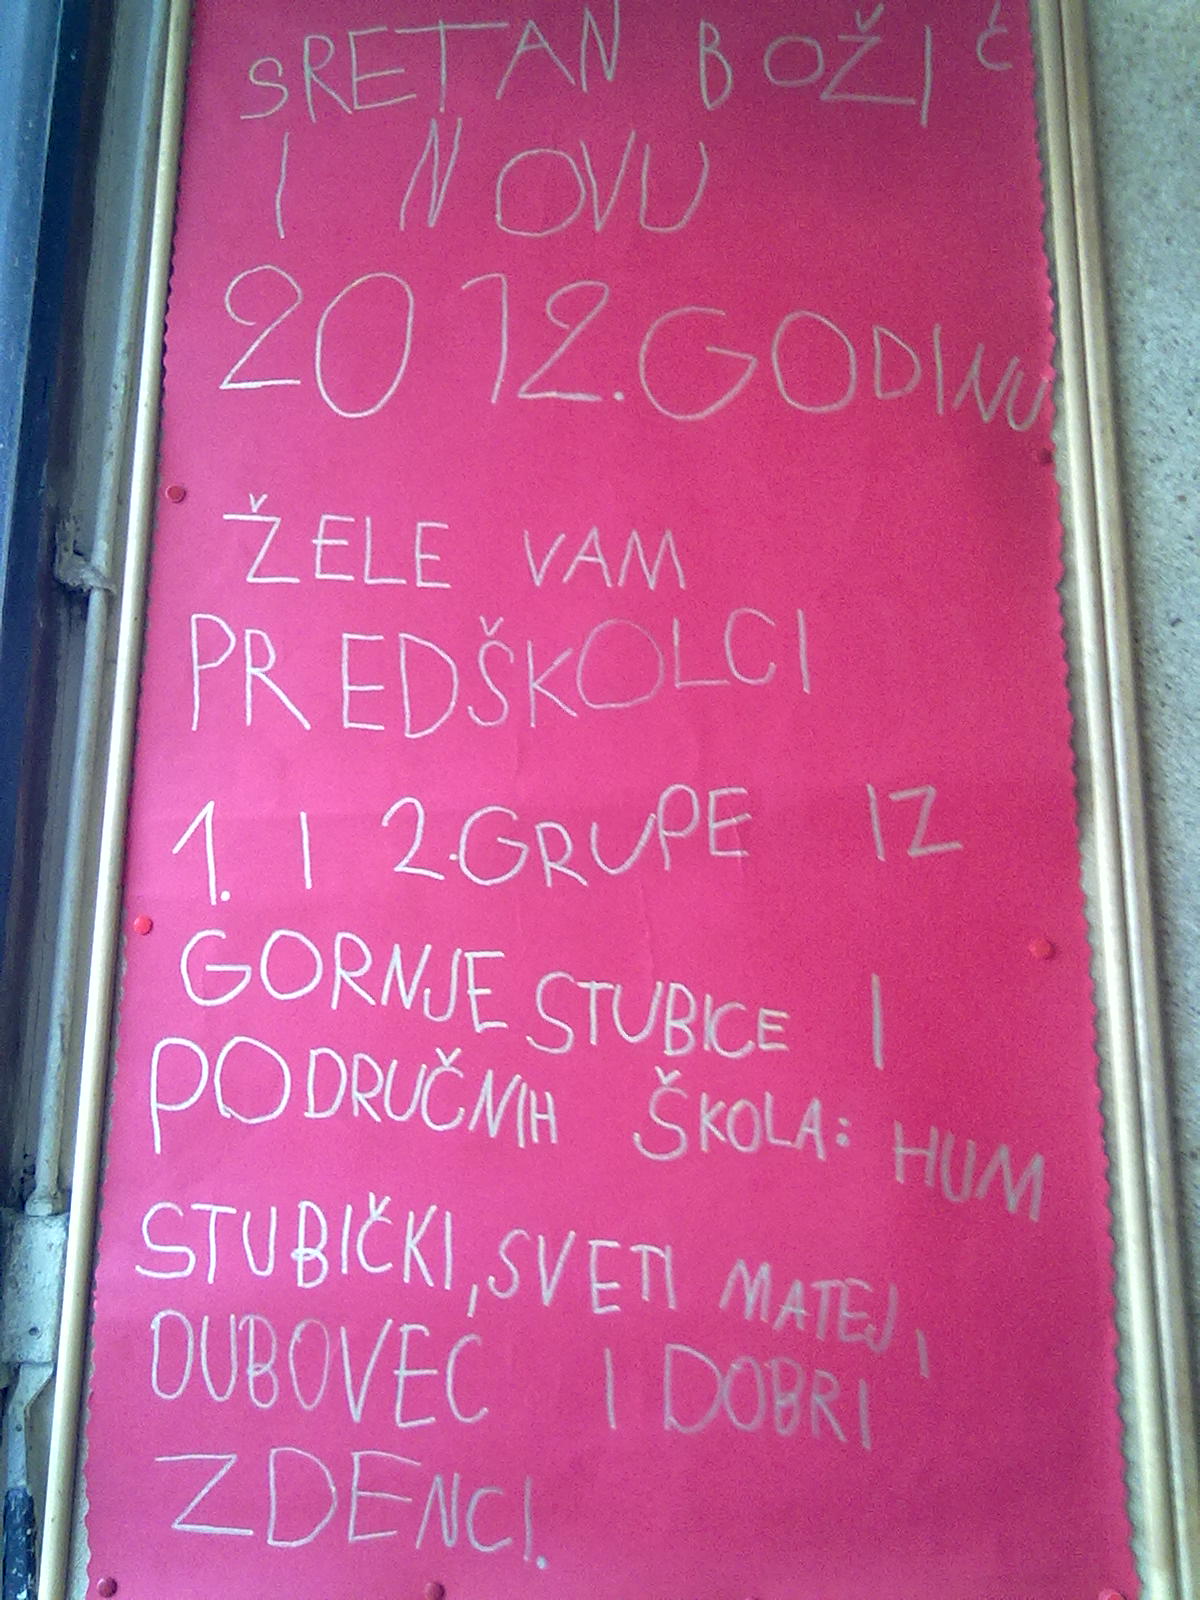 SRETAN BOŽIĆ
I NOVU
2012. GODINU
ŽELE VAM
PREDŠKOLCI
1. I 2. GRUPE IZ
GORNJE STUBICE I
PODRUČNIH ŠKOLA: HUM
STUBIČKI, SVETI MATEJ,
DUBOVEC I DOBRI
ZDENCI.